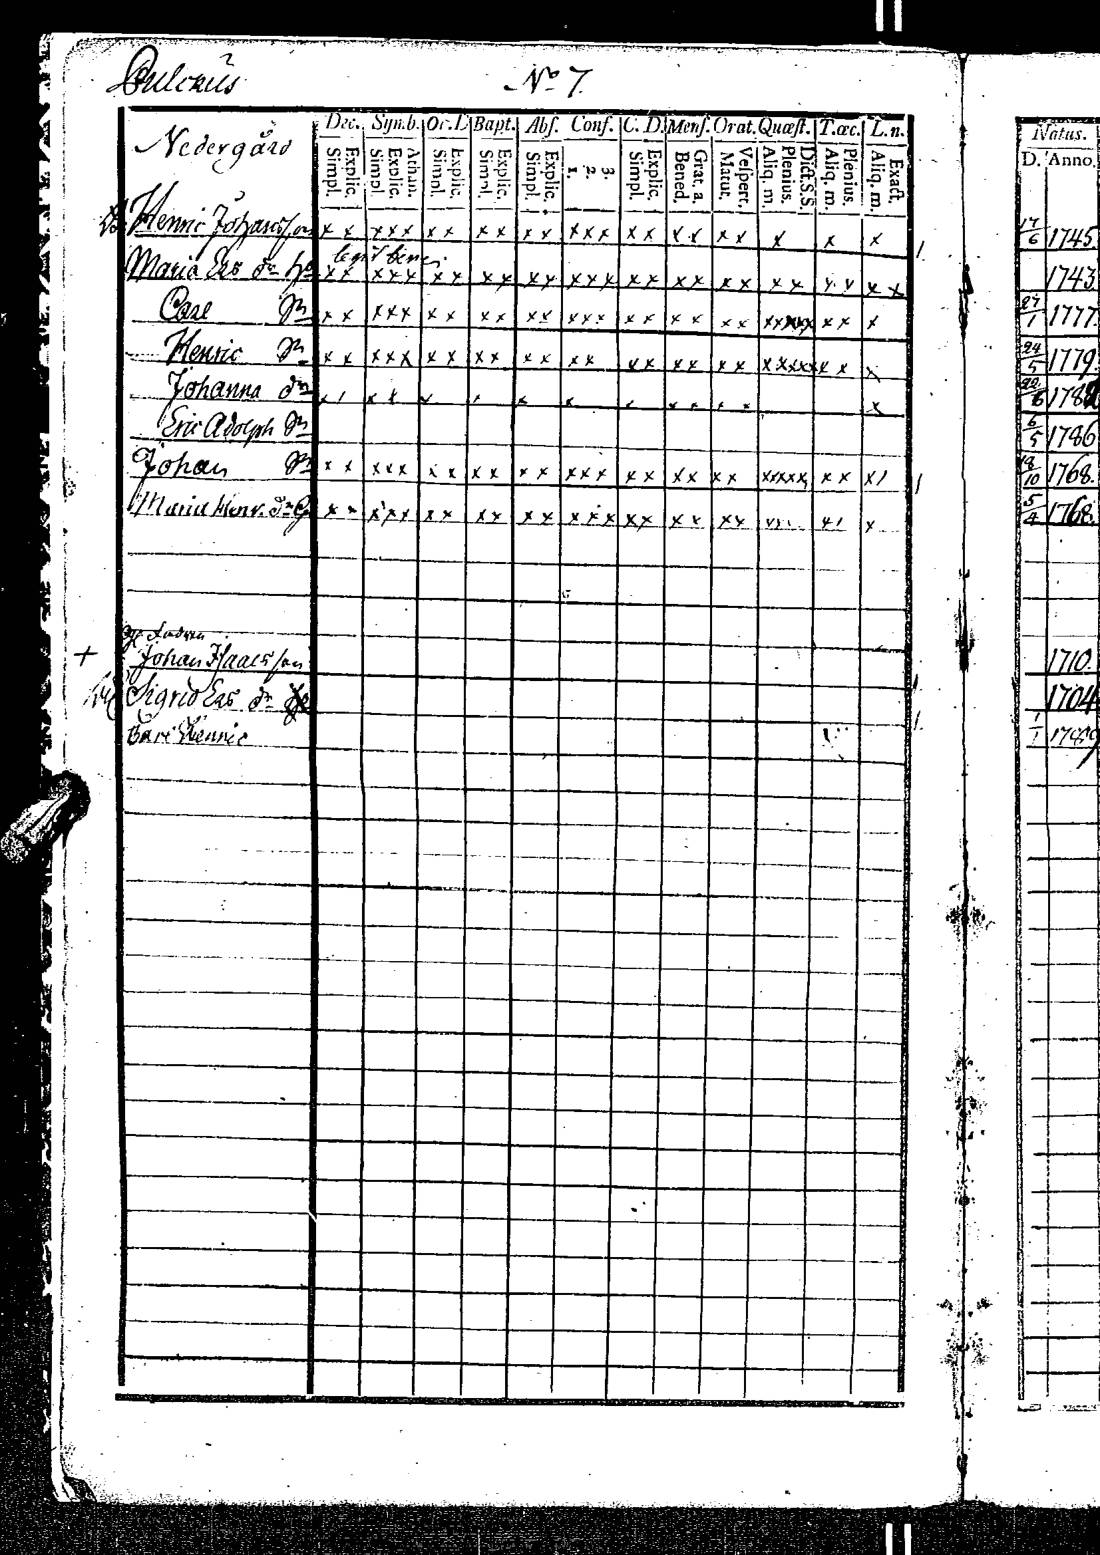 No 7.
Nedergård
Dec. Symb. Or. D Bapt. Abs. Conf. C. D. Mens. Orat. Quæst. T. œc. L. n.
Explic. Simpl. Athan. Explic. Simpl. Explic. Simpl. Explic. Simpl. Explic. Simpl. 3. 2. 1. Explic. Simpl. Grat. a. Bened. Vespert. Matut. Dict. S. S. Plenius. Aliq. m. Plenius. Aliq. m. Exact. Aliq. m.
Natus.
D. Anno.
Henric Johansson x x x x x x x x x x x x x x x x x x x x x x x 17/6 1745.
Maria Ers dr x x x x x x x x x x x x x x x x x x x x x x x x x 1743
Carl Sn x x x x x x x x x x x x x x x x x x x x x x x 27/1 1777.
Henric Sn x x x x x x x x x x x x x x x x x x x x 24/5 1779.
Johanna dr
Eric Adolph Sn 6/5 1786
Johan Sn x x x x x x x x x x x x x x x x x x x x 18/10 1768.
Maria Henr. dr x x x x x x x x x x x x x x x x x x x x 5/4 1768.
+ Johan Isaacsson 1710.
Sigrid Ers dr 1704
Henric 1/1 1789